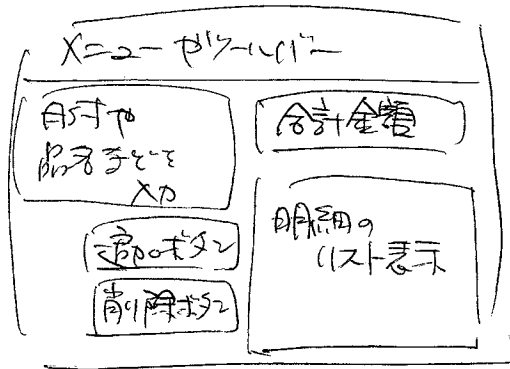 メニューやツールバー
日付や
品名などを
入力
追加ボタン
削除ボタン
合計金額
明細の
リスト表示